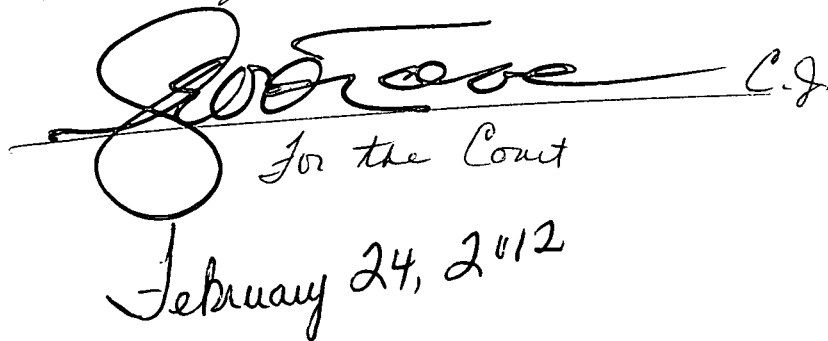 C.J.
For the Court
February 24, 2012